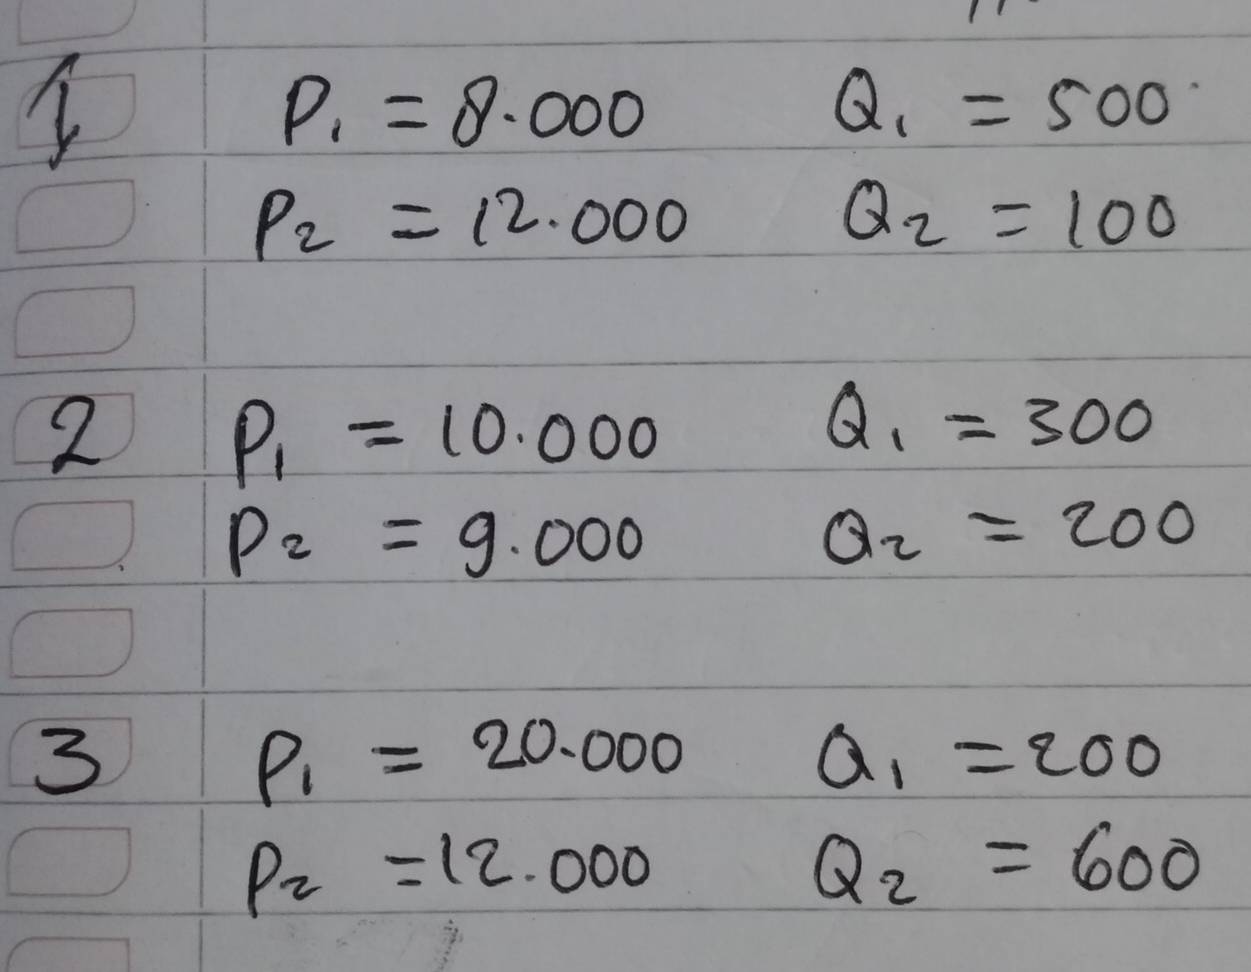 1 P₁ = 8.000 Q₁ = 500
P₂ = 12.000 Q₂ = 100
2 P₁ = 10.000 Q₁ = 300
P₂ = 9.000 Q₂ = 200
3 P₁ = 20.000 Q₁ = 200
P₂ = 12.000 Q₂ = 600